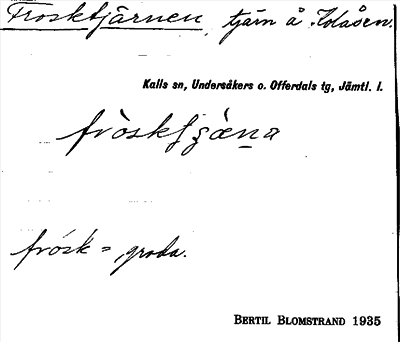 Frosktjärnen, tjärn å Kolåsen.
Kalls sn, Undersåkers o. Offerdals tg, Jämtl. l.
fròsktʃæ̀ṇa
frósk = groda.
BERTIL BLOMSTRAND 1935